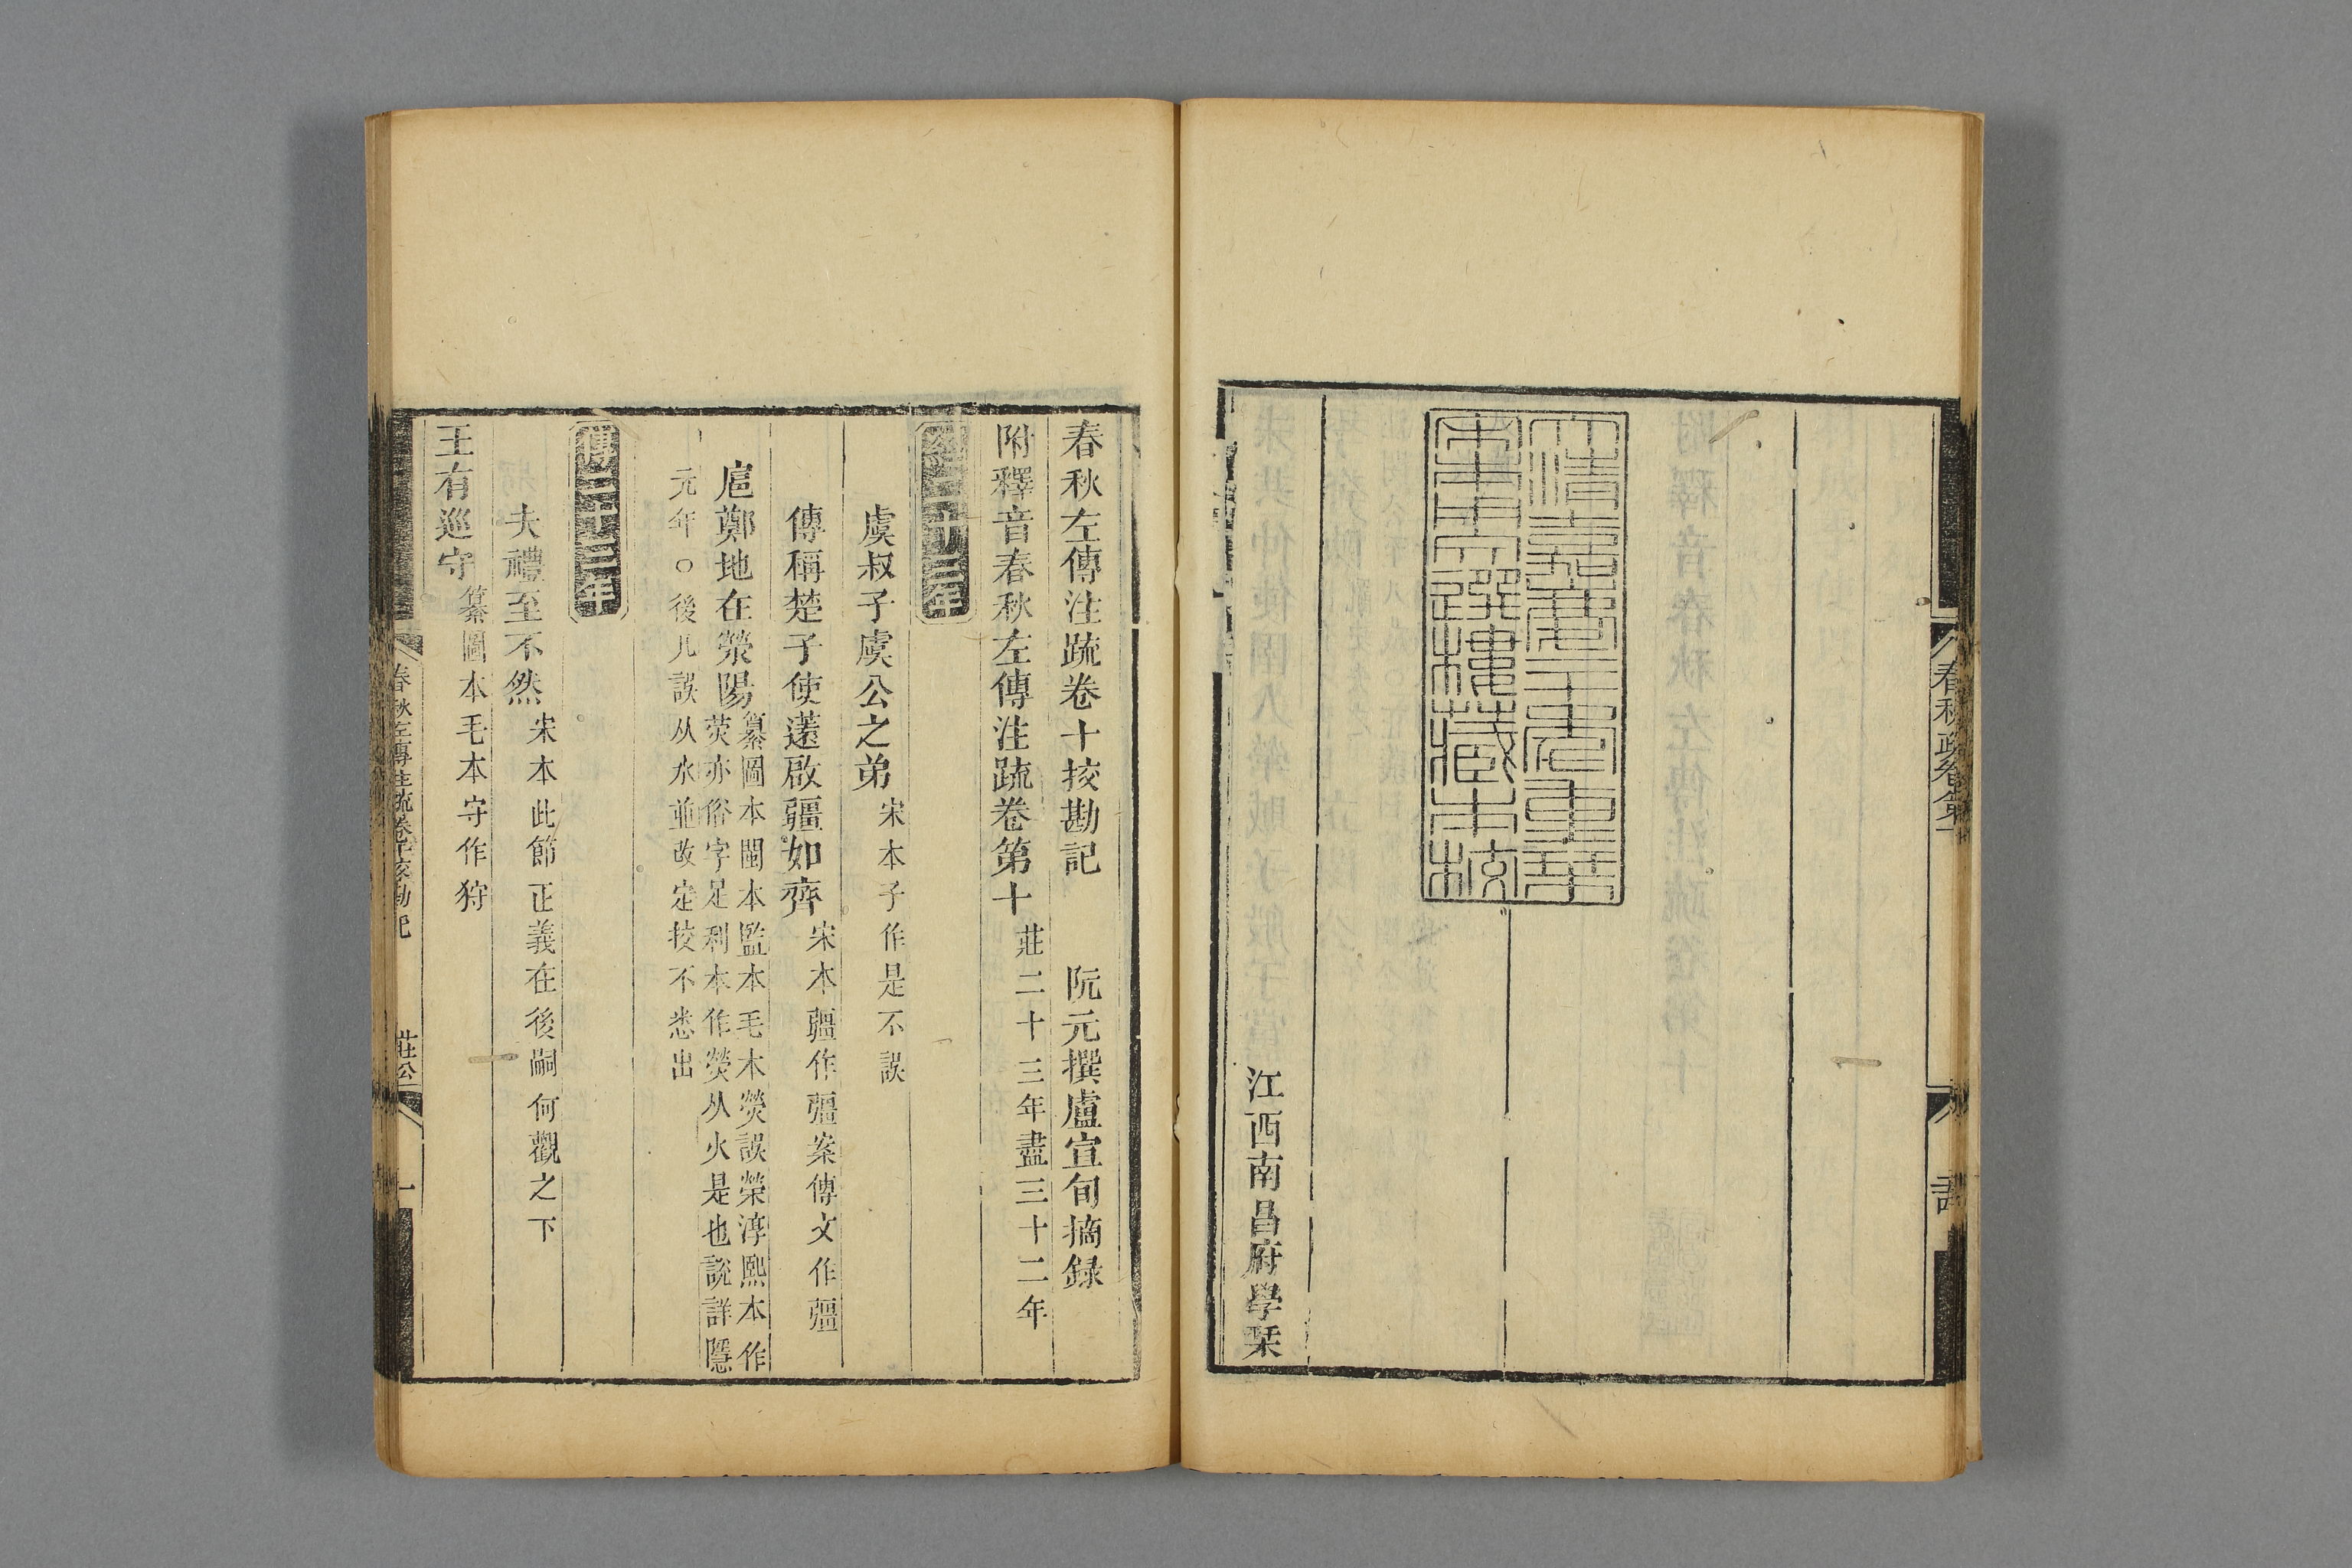 大清嘉慶二十年重栞
宋本用文選樓藏本校
江西南昌府學栞
春秋左傳注疏卷十挍勘記 阮元撰盧宣旬摘録
附釋音春秋左傳注疏卷第十 莊二十三年盡三十二年
經二十三年
虞叔子虞公之弟 宋本子作是不誤
傳稱楚子使薳啟疆如齊 宋本疆作彊案傳文作彊
扈鄭地在滎陽 纂圖本閩本監本毛本熒誤榮淳熙本作
荧亦俗字足利本作熒从火是也說詳隱
元年○後凡誤从水並改定挍不悉出
傳二十三年
夫禮至不然 宋本此節正義在後嗣何觀之下
王有巡守 纂圖本毛本守作狩
春秋左傳注疏卷十挍勘記 莊公 一